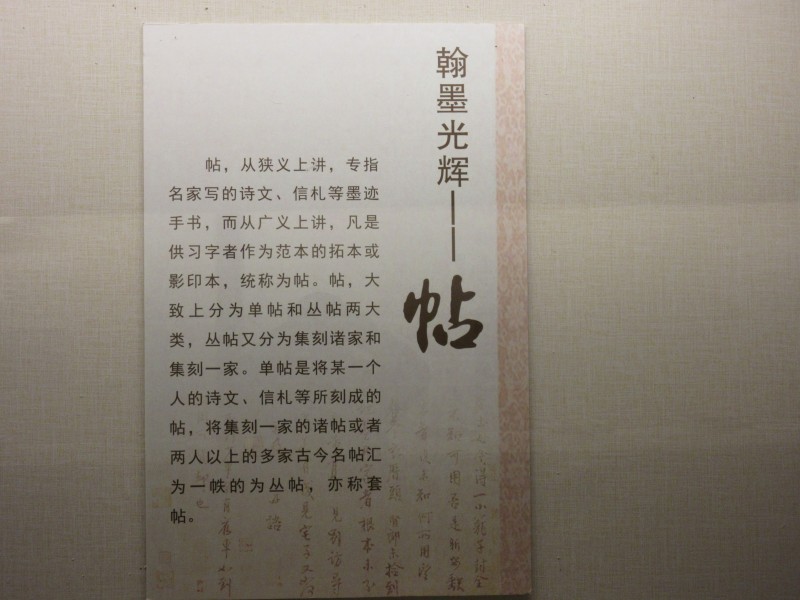 翰墨光辉——
帖
帖，从狭义上讲，专指
名家写的诗文、信札等墨迹
手书，而从广义上讲，凡是
供习字者作为范本的拓本或
影印本，统称为帖。帖，大
致上分为单帖和丛帖两大
类，丛帖又分为集刻诸家和
集刻一家。单帖是将某一个
人的诗文、信札等所刻成的
帖，将集刻一家的诸帖或者
两人以上的多家古今名帖汇
为一帙的为丛帖，亦称套
帖。